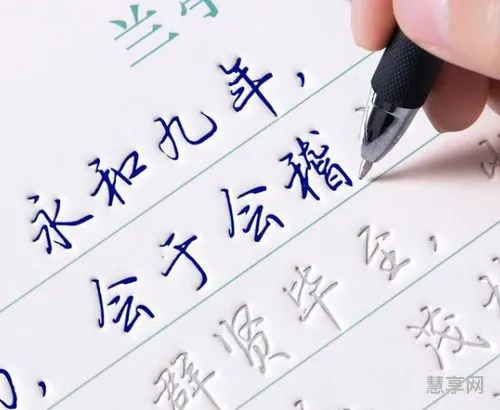 兰亭
永和九年，
会于会稽
群贤毕至，
茂
慧享网